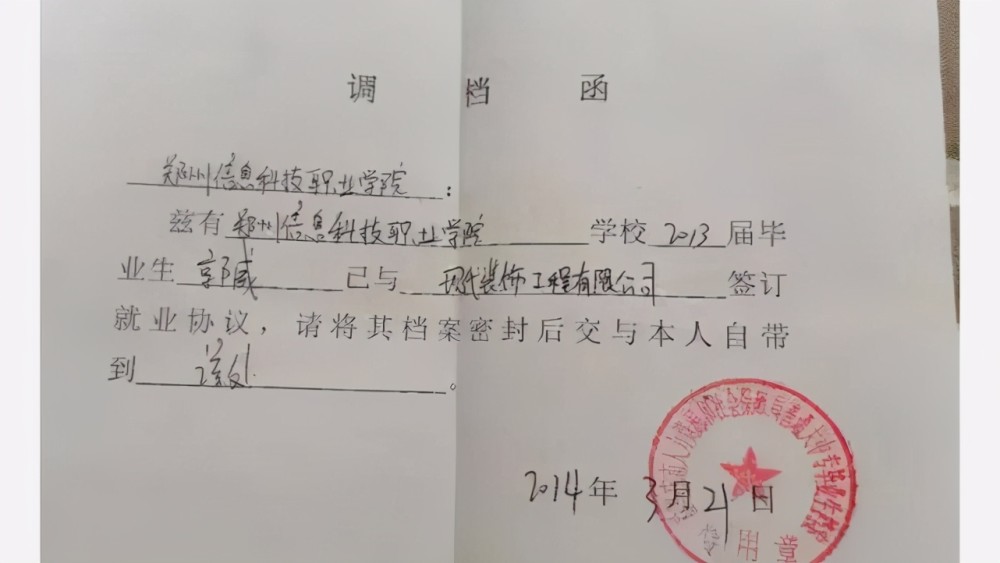 调档函
郑州信息科技职业学院：
兹有郑州信息科技职业学院学校2013届毕
业生郭威已与现代装饰工程有限公司签订
就业协议，请将其档案密封后交与本人自带
到该处。
2014年3月21日
用章